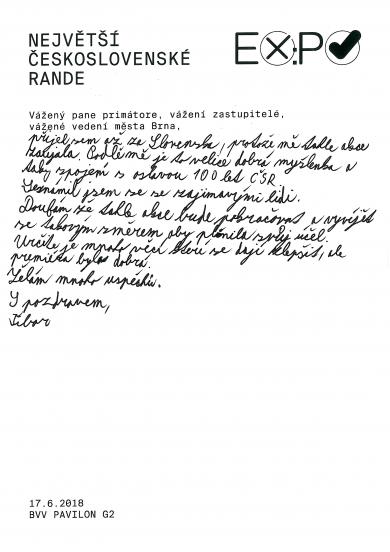 NEJVĚTŠÍ
ČESKOSLOVENSKÉ
RANDE
EXPO
Vážený pane primátore, vážení zastupitelé,
vážené vedení města Brna,
přijel sem až za Slovenska, protože mě takle akce
zaujala. Podle mě je to velice dobrá myšlenka a
taky spojení s oslavou 100 let ČSR.
Seznámil jsem se se zajímavými lidi.
Doufám že takle akce bude pokračovat a vyvíjět
se takovým směrem aby plnila svůj účel.
Určite je mnoho věcí které se dají zlepšit, ale
premiéra byla dobrá.
Želám mnoho uspěchů.
S pozdravem,
Tibor
17.6.2018
BVV PAVILON G2